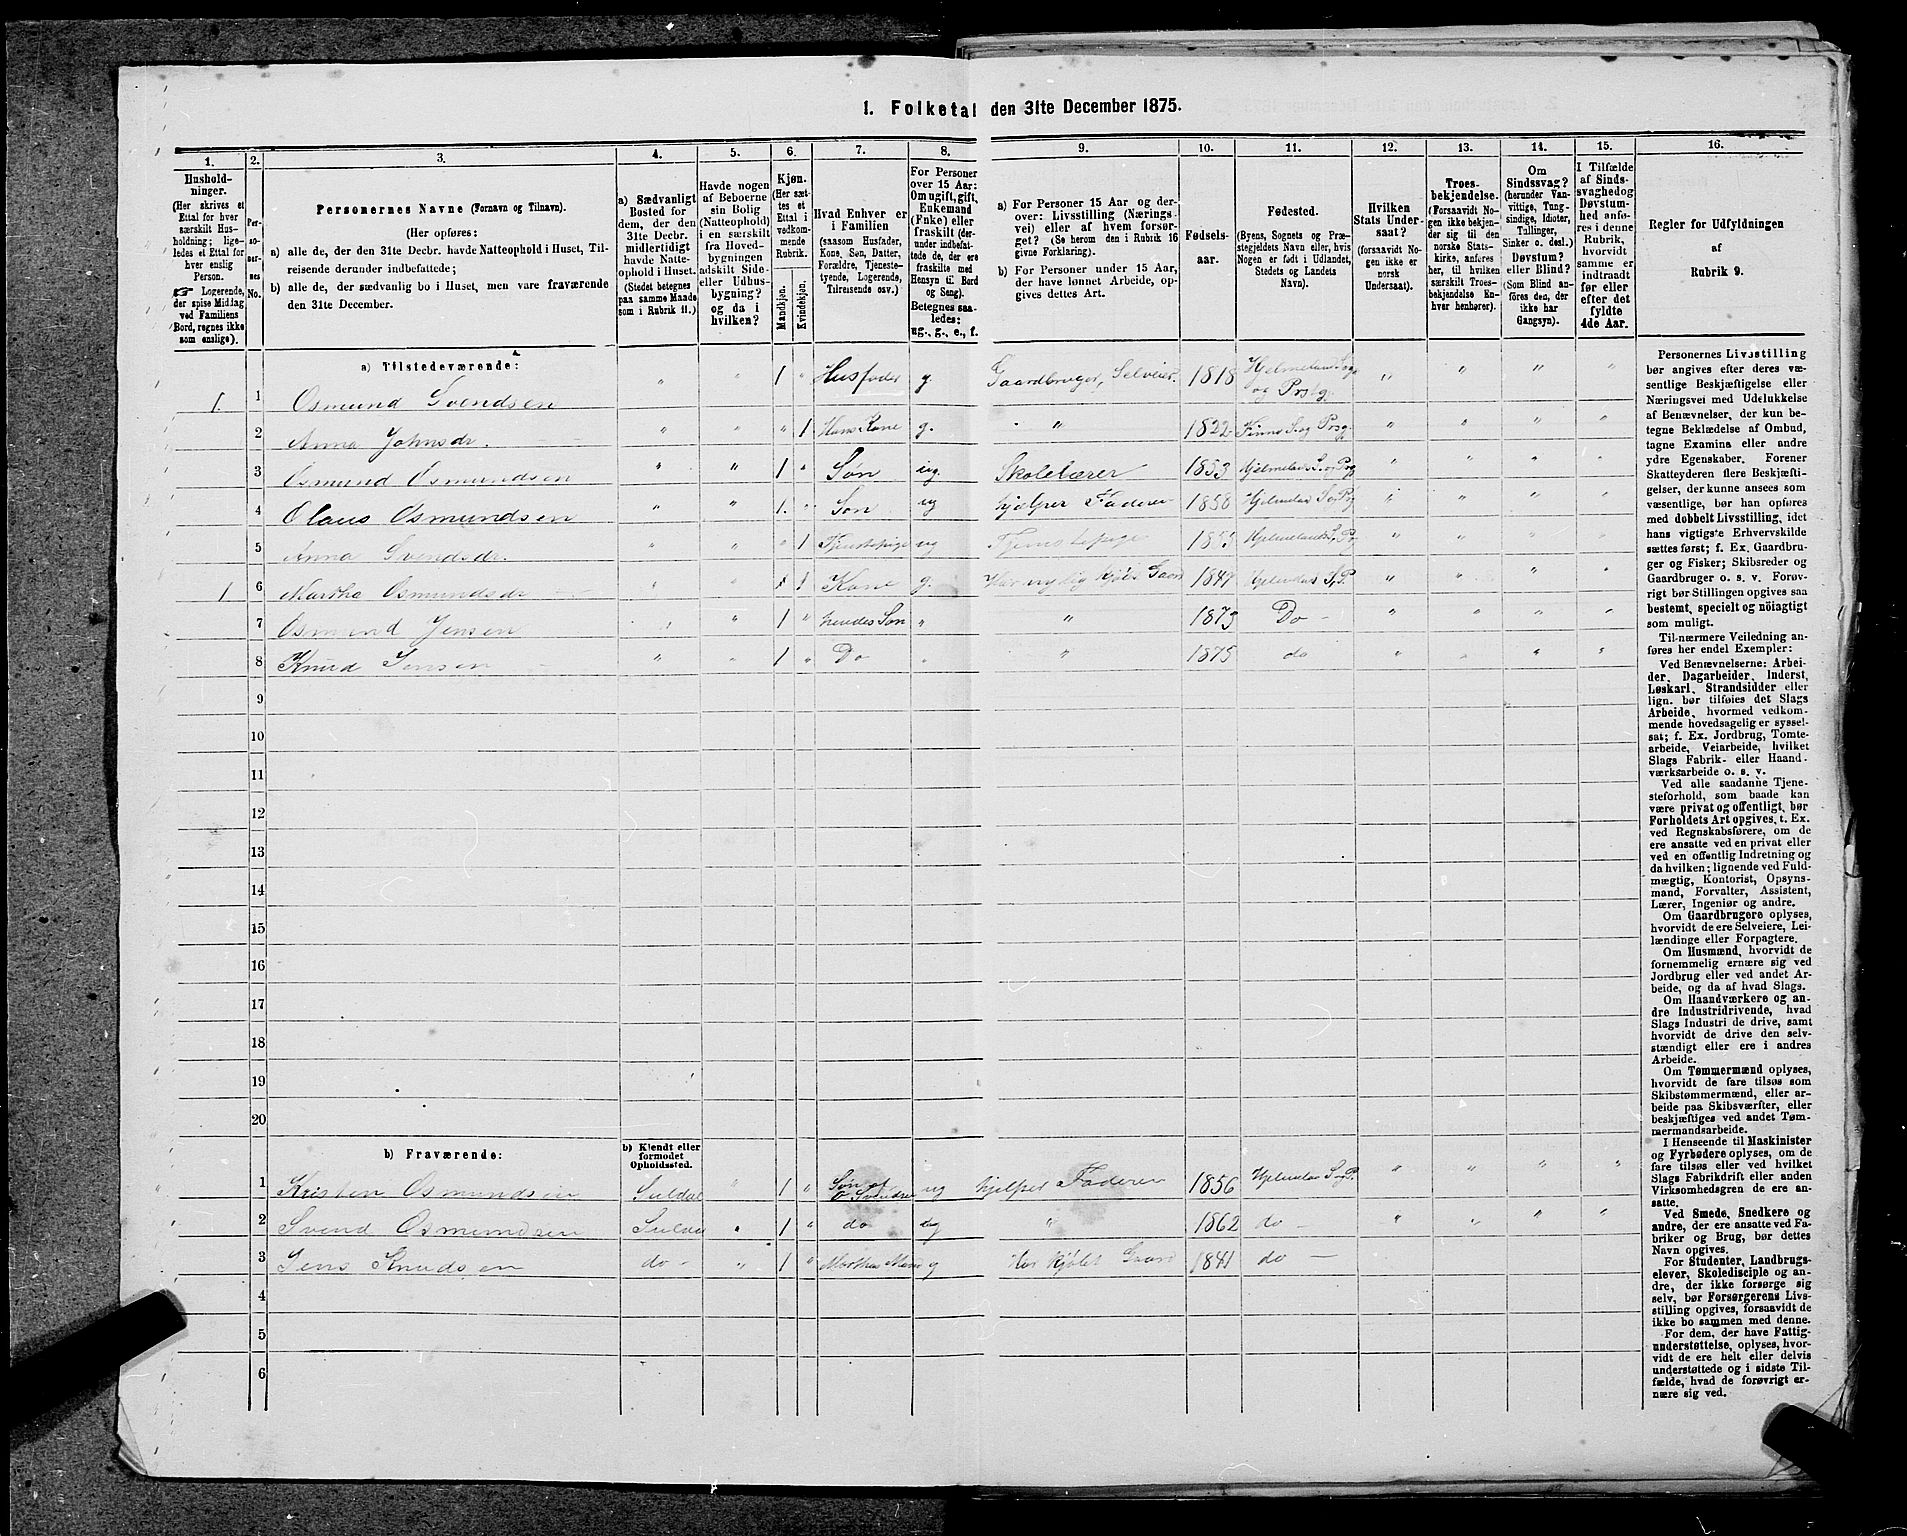 1. Folketal den 31te December 1875.
1. 2. 3. 4. 5. 6. 7. 8. 9. 10. 11. 12. 13. 14. 15. 16.
Hushold-
ninger.
(Her skrives et
Ettal for hver
særskilt Hus-
holdning; lige-
ledes et Ettal for
hver enslig
Person.
☞ Logerende,
der spise Middag
ved Familiens
Bord, regnes ikke
som enslige).
Per-
so-
ner-
nes
No.
Personernes Navne (Fornavn og Tilnavn).
(Her opføres:
a) alle de, der den 31te Decbr. havde Natteophold i Huset, Til-
reisende derunder indbefattede;
b) alle de, der sædvanlig bo i Huset, men vare fraværende
den 31te December.
a) Sædvanligt
Bosted for
dem, der den
31te Decbr.
midlertidigt
havde Natte-
ophold i Huset.
(Stedet betegnes
paa samme Maade
som i Rubrik 11.)
Havde nogen
af Beboerne
sin Bolig
(Natteophold)
i en særskilt
fra Hoved-
bygningen
adskilt Side-
eller Udhus-
bygning?
og da i
hvilken?
Kjøn.
(Her sæt-
tes et
Ettal i
vedkom-
mende
Rubrik.
Mandkjøn.
Kvindekjøn.
Hvad Enhver er
i Familien
(saasom Husfader,
Kone, Søn, Datter,
Forældre, Tjeneste-
tyende, Logerende,
Tilreisende osv.)
For Personer
over 15 Aar:
Om ugift, gift,
Enkemand
(Enke) eller
fraskilt (der-
under indbefat-
tede de, der ere
fraskilte med
Hensyn til Bord
og Seng).
Betegnes saa-
ledes:
ug., g., e., f.
a) For Personer 15 Aar og der-
over: Livsstilling (Nærings-
vei) eller af hvem forsør-
get? (Se herom den i Rubrik 16
givne Forklaring).
b) For Personer under 15 Aar,
der have lønnet Arbeide, op-
gives dettes Art.
Fødsels-
aar.
Fødested.
(Byens, Sognets og Præ-
stegjeldets Navn eller, hvis
Nogen er født i Udlandet,
Stedets og Landets
Navn).
Hvilken
Stats Under-
saat?
(forsaavidt No-
gen ikke er
norsk
Undersaat).
Troes-
bekjendelse.
(Forsaavidt No-
gen ikke bekjen-
der sig til den
norske Stats-
kirke, anføres
her, til hvilken
særskilt Troes-
bekjendelse En-
hver henhører).
Om
Sindssvag?
(herunder Van-
vittige, Tung-
sindige, Idioter,
Tullinger,
Sinker o. desl.)
Døvstum?
eller Blind?
(Som Blind an-
føres den, der
ikke har
Gangsyn).
I Tilfælde
af Sinds-
svaghed og
Døvstum-
hed anfø-
res i denne
Rubrik,
hvorvidt
samme er
indtraadt
før eller
efter det
fyldte
4de Aar.
Regler for Udfyldningen
af
Rubrik 9.
a) Tilstedeværende:
1. 1 Osmund Svendsen " " 1 " Husfader g. Gaardbruger, Selveier. 1818 Hjelmeland Sog og Prstg. " " " "
2 Anna Johnsdr. " " " 1 Hans Kone g. " 1822 S. og Prsg " " " "
3 Osmund Osmundsen " " 1 " Søn ug. Skolelærer 1853 Hjelmelands S. og Prg " " " "
4 Olaus Osmundsen " " 1. " Søn ug hjælper Faderen 1858 Hjelmelan S og Prg " " " "
5 Anna Svendsdr. " " " 1 Tjenstepige ug Tjenstepige Hjelmelands S. P. " " " "
1 6 Martha Osmundsdr " " 1 Kone g. Har nylig kjøbt Gaard Hjelmelas S. P. " " " "
7 Osmund Jensen " " 1 " hendes Søn " " 1873 Do - " " " "
8 Knud Jensen " " 1 " Do " " 1875 do " " " "
9
10
11
12
13
14
15
16
17
18
19
20
b) Fraværende:
b) Kjendt eller
formodet
Opholdssted.
1 Kristen Osmundsen Suldal " 1 " Søn af O Svendsen ug hjelper Faderen 1856 Hjelmelas S og P. " " " "
2 Svend Osmundsen Suldal " 1 " do ug " 1862 do - " " " "
3 Jens Knudsen do - " 1 " Marthas Mand g Har kjøbt Gaard 1841 do -
4
5
6
Personernes Livsstilling
bør angives efter deres væ-
sentlige Beskjæftigelse eller
Næringsvei med Udelukkelse
af Benævnelser, der kun be-
tegne Beklædelse af Ombud,
tagne Examina eller andre
ydre Egenskaber. Forener
Skatteyderen flere Beskjæfti-
gelser, der kunne ansees som
væsentlige, bør han opføres
med dobbelt Livsstilling, idet
hans vigtigste Erhvervskilde
sættes først; f. Ex. Gaardbru-
ger og Fisker; Skibsreder og
Gaardbruger o. s. v. Forøv-
rigt bør Stillingen opgives saa
bestemt, specielt og nöiagtigt
som muligt.
Til nærmere Veiledning an-
føres her endel Exempler:
Ved Benævnelserne: Arbei-
der, Dagarbeider, Inderst,
Løskarl, Strandsidder eller
lign. bør tilføies det Slags
Arbeide, hvormed vedkom-
mende hovedsagelig er syssel-
sat; f. Ex. Jordbrug, Tomte-
arbeide, Veiarbeide, hvilket
Slags Fabrik- eller Haand-
værksarbeide o. s. v.
Ved alle saadanne Tjene-
steforhold, som baade kan
være privat og offentligt, bør
Forholdets Art opgives, t. Ex.
ved Regnskabsførere, om de
ere ansatte ved en privat eller
ved en offentlig Indretning og
da hvilken; lignende ved Fuld-
mægtig, Kontorist, Opsyns-
mand, Forvalter, Assistent,
Lærer, Ingeniør og andre.
Om Gaardbrugere oplyses,
hvorvidt de ere Selveiere, Lei-
lændinge eller Forpagtere.
Om Husmænd, hvorvidt de
fornemmelig ernære sig ved
Jordbrug eller ved andet Ar-
beide, og da af hvad Slags.
Om Haandværkere og an-
dre Industridrivende, hvad
Slags Industri de drive, samt
hvorvidt de drive den selv-
stændigt eller ere i andres
Arbeide.
Om Tømmermænd oplyses,
hvorvidt de fare tilsøs som
Skibstømmermænd, eller ar-
beide paa Skibsværfter, eller
beskjæftiges ved andet Tøm-
mermandsarbeide.
I Henseende til Maskinister
og Fyrbødere oplyses, om de
fare tilsøs eller ved hvilket
Slags Fabrikdrift eller anden
Virksomhedsgren de ere an-
satte.
Ved Smede, Snedkere og
andre, der ere ansatte ved Fa-
briker og Brug, bør dettes
Navn opgives.
For Studenter, Landbrugs-
elever, Skoledisciple og an-
dre, der ikke forsørge sig
selv, bør Forsørgerens Livs-
stilling opgives, forsaavidt de
ikke bo sammen med denne.
For dem, der have Fattig-
understøttelse, oplyses, hvor-
vidt de ere helt eller delvis
understøttede og i sidste Til-
fælde, hvad de forøvrigt er-
nære sig ved.